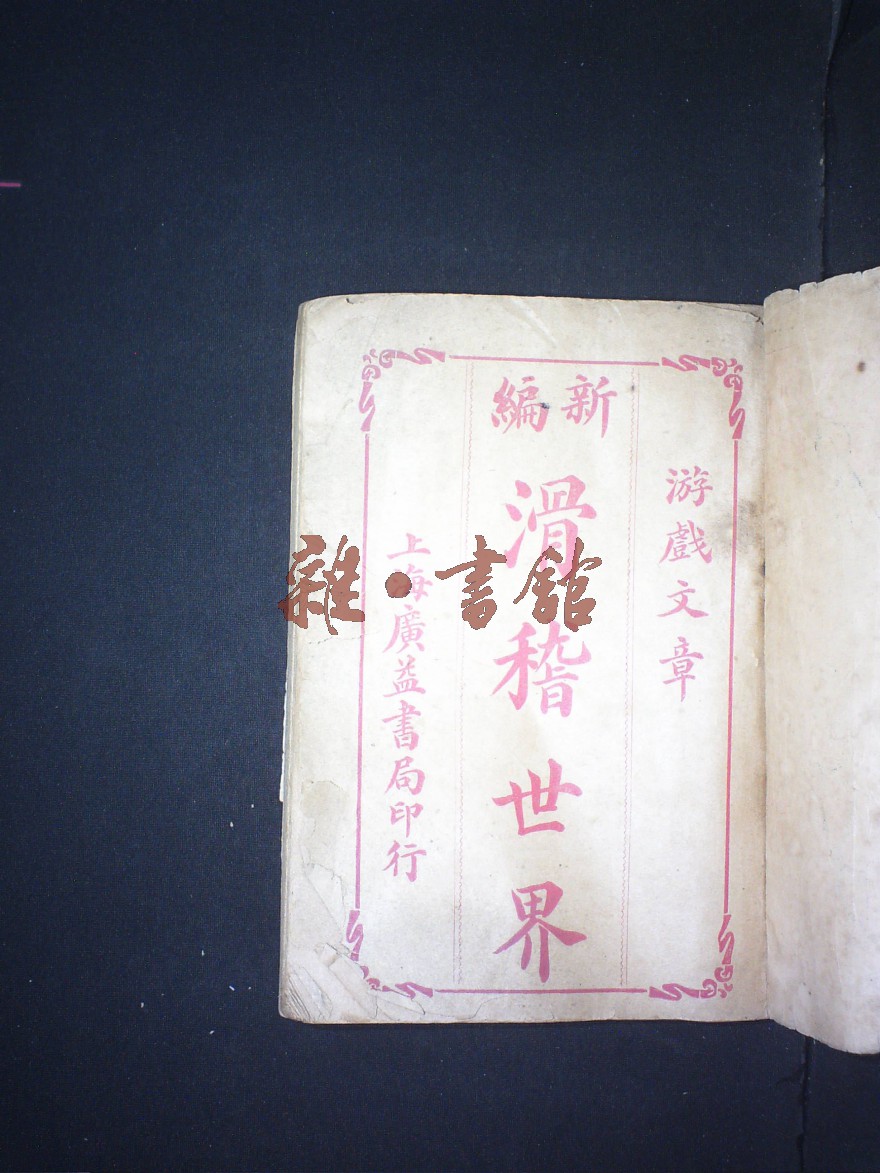 游戲文章
新編
滑稽世界
上海廣益書局印行
雜·書館